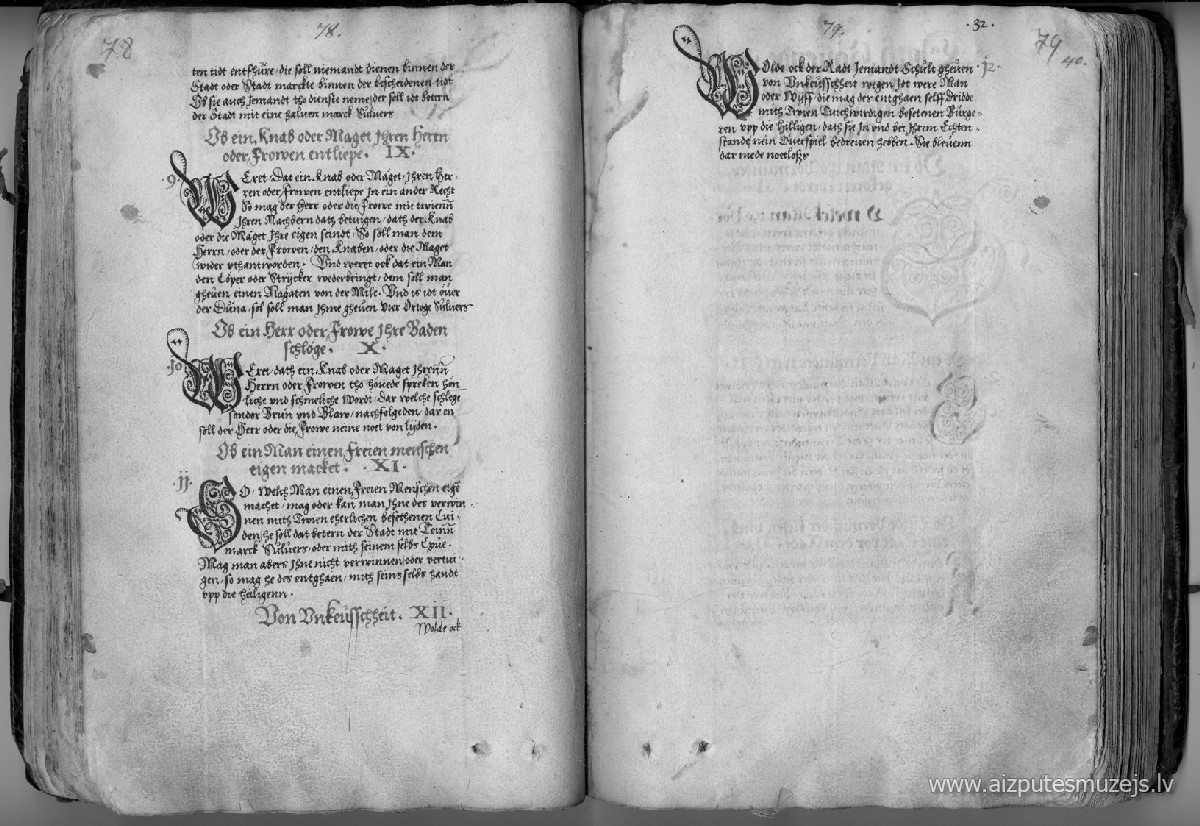 78
78.
ten tidt entfhüre, die soll niemandt dienen binnen der
Stadt oder Stadt marckte binnen der bescheidenen tidt
Ob sie auch Jemandt tho dienste neme, der soll idt betern
der Stadt mit eine haluen marck Suluers
Ob ein Knab oder Maget Jhren Herrn
oder Frowen entliepe. IX.
9.
WEret Dat ein Knab oder Maget, Jhren Her-
ren oder Frowen entliepe In ein ander Recht
So mag der Herr oder die Frowe mit twienn
Jhren Nachbern dath betuigen, dath der Knab
oder die Maget Jhre eigen seindt, So soll man dem
Herrn, oder der Frowen, den Knaben, oder die Maget
wider vthantworden. Vnd weret ock dat ein Man
den Löper oder Strycker wederbringt, dem sall man
gheuen einen von der Mile. Vnd is idt öuer
der Düna, sol soll man Jhme gheuen vier Suluers
Ob ein Herr oder Frowe Jhre Baden
schlöge. X.
10.
WEret dath ein Knab oder Maget Jhrenn
Herrn oder Frowen tho houede spreken hön
liche vnd schmeliche Wordt, Dar welche schlege
sonder Brun vnd Blaw, nachfolgeden, dar en
soll der Herr oder die Frowe neine noet von lyden.
Ob ein Man einen Freien menschen
eigen macket. XI.
11.
SO, Welch Man einen Freien Menschen eige
machet, mag oder kan man Jhne des verwin-
nen mith Twen eherlichen besethenen Lüi-
den, he soll dat betern der Stadt mit Teinn
marck Suluers, oder mith seinem selbs
Mag man abers Jhne nicht verwinnen, oder vertui-
gen, so mag he des entghaen, mith seins selbs handt
vpp die heiligenn.
Von Vnkeüsschheit. XII.
Wolde ock
79.
.32.
79
40.
12.
WOlde ock der Radt Jemandt Schult gheuen
von Vnkeüsschheit wegen, Jdt were Man
oder Wyff, die mag der entghaen selff dridde
mith Twen besetenen Bürge-
ren vpp die Hilligen, dath sie In vnd bei Jhrem Echten
stande nein Ouerspiel bedreuen hebben. Sie bleuenn
dar mede noetlosz
www.aizputesmuzejs.lv